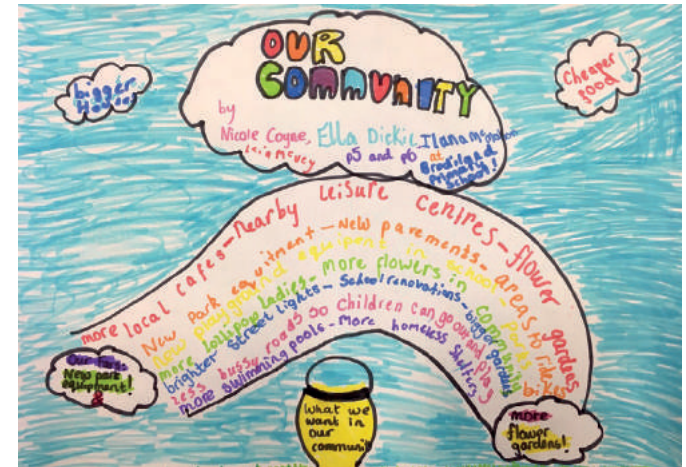 OUR
COMMUNITY
by
Nicole Coyne, Ella Dickie, Ilana
p5 and p6 at
Primary
School!
bigger
Cheaper
food!
more local cafes - nearby leisure centres - flower gardens
New park equitment - New parements - areas to ride bikes
New playground equipent in school - parks
more lollipop ladies - more flowers in community
brighter street lights - School renovations - bigger gardens
Less bussy roads so children can go out and play
more swimming pools - More homeless shelters
Our
New park
equipment!
&
What we
want in
our
communit
more
flower
gardens!